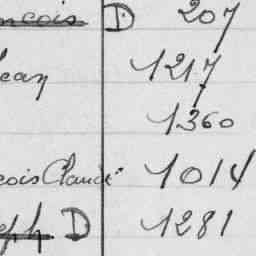 ncois D 207
Jean 1217
1360
cois Claude 1014
eph D 1281